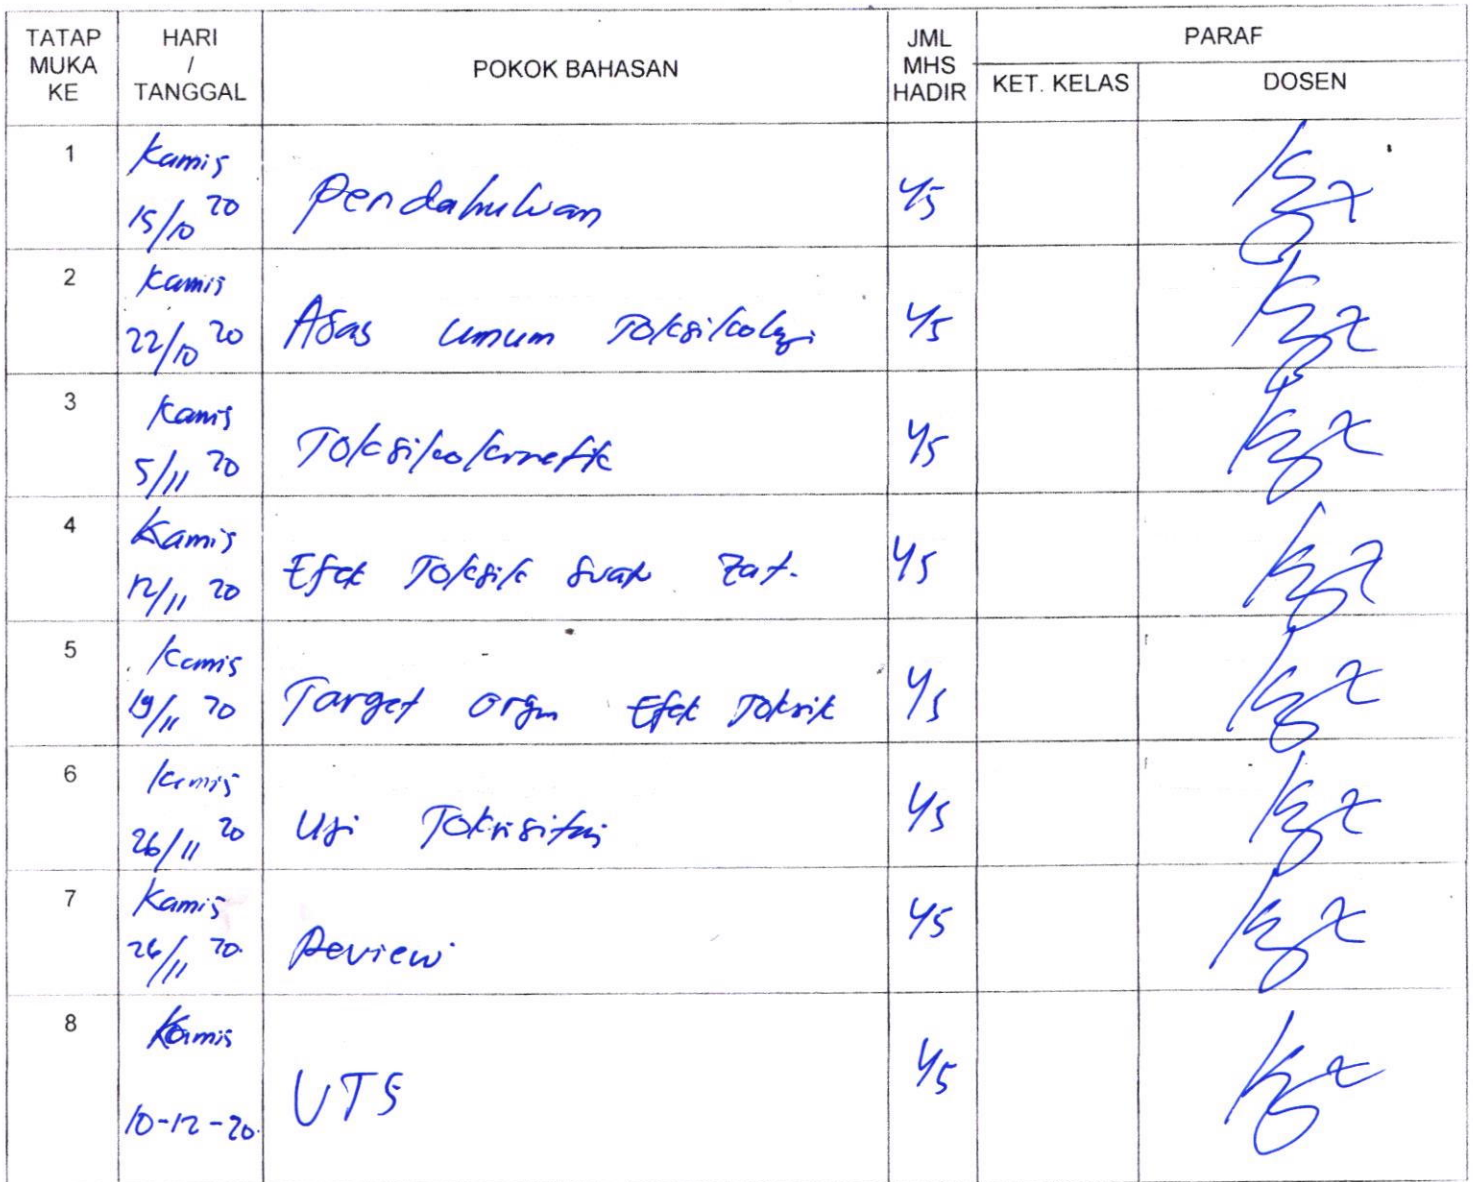 TATAP MUKA KE | HARI / TANGGAL | POKOK BAHASAN | JML MHS HADIR | PARAF
KET. KELAS | DOSEN
1 | Kamis 15/10 20 | Pendahuluan | 45
2 | Kamis 22/10 20 | Asas umum Toksikologi | 45
3 | Kamis 5/11 20 | Toksikokinetik | 45
4 | Kamis 12/11 20 | Efek Toksik Suatu Zat. | 45
5 | Kamis 19/11 20 | Target Organ Efek Toksik | 45
6 | Kamis 26/11 20 | Uji Toksisitas | 45
7 | Kamis 26/11 20. | Review | 45
8 | Kamis 10-12-20. | UTS | 45